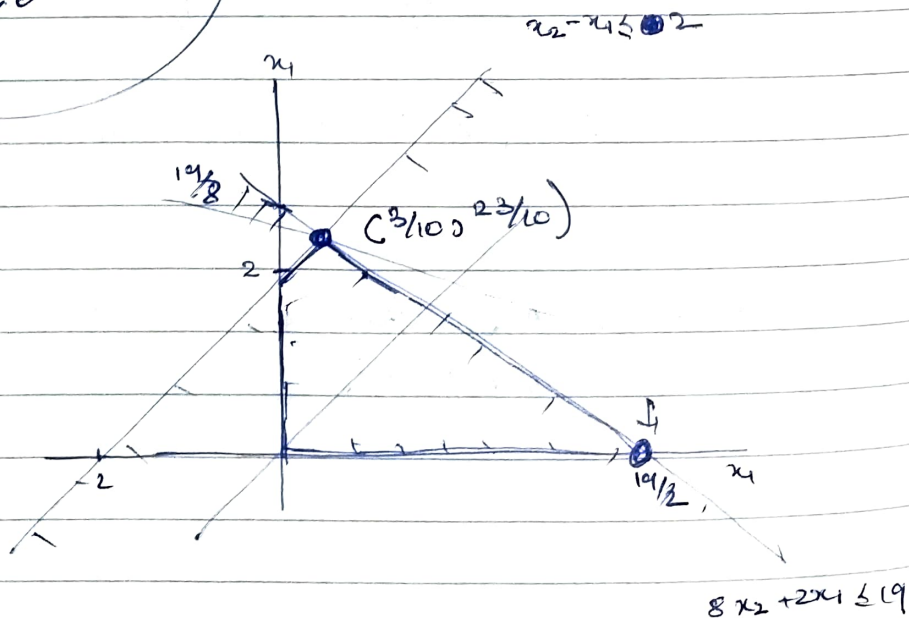 x₂ - x₁ ≤ 2
x₁
19/8
(3/10, 23/10)
2
-2
19/2
x₁
8x₂ + 2x₁ ≤ 19